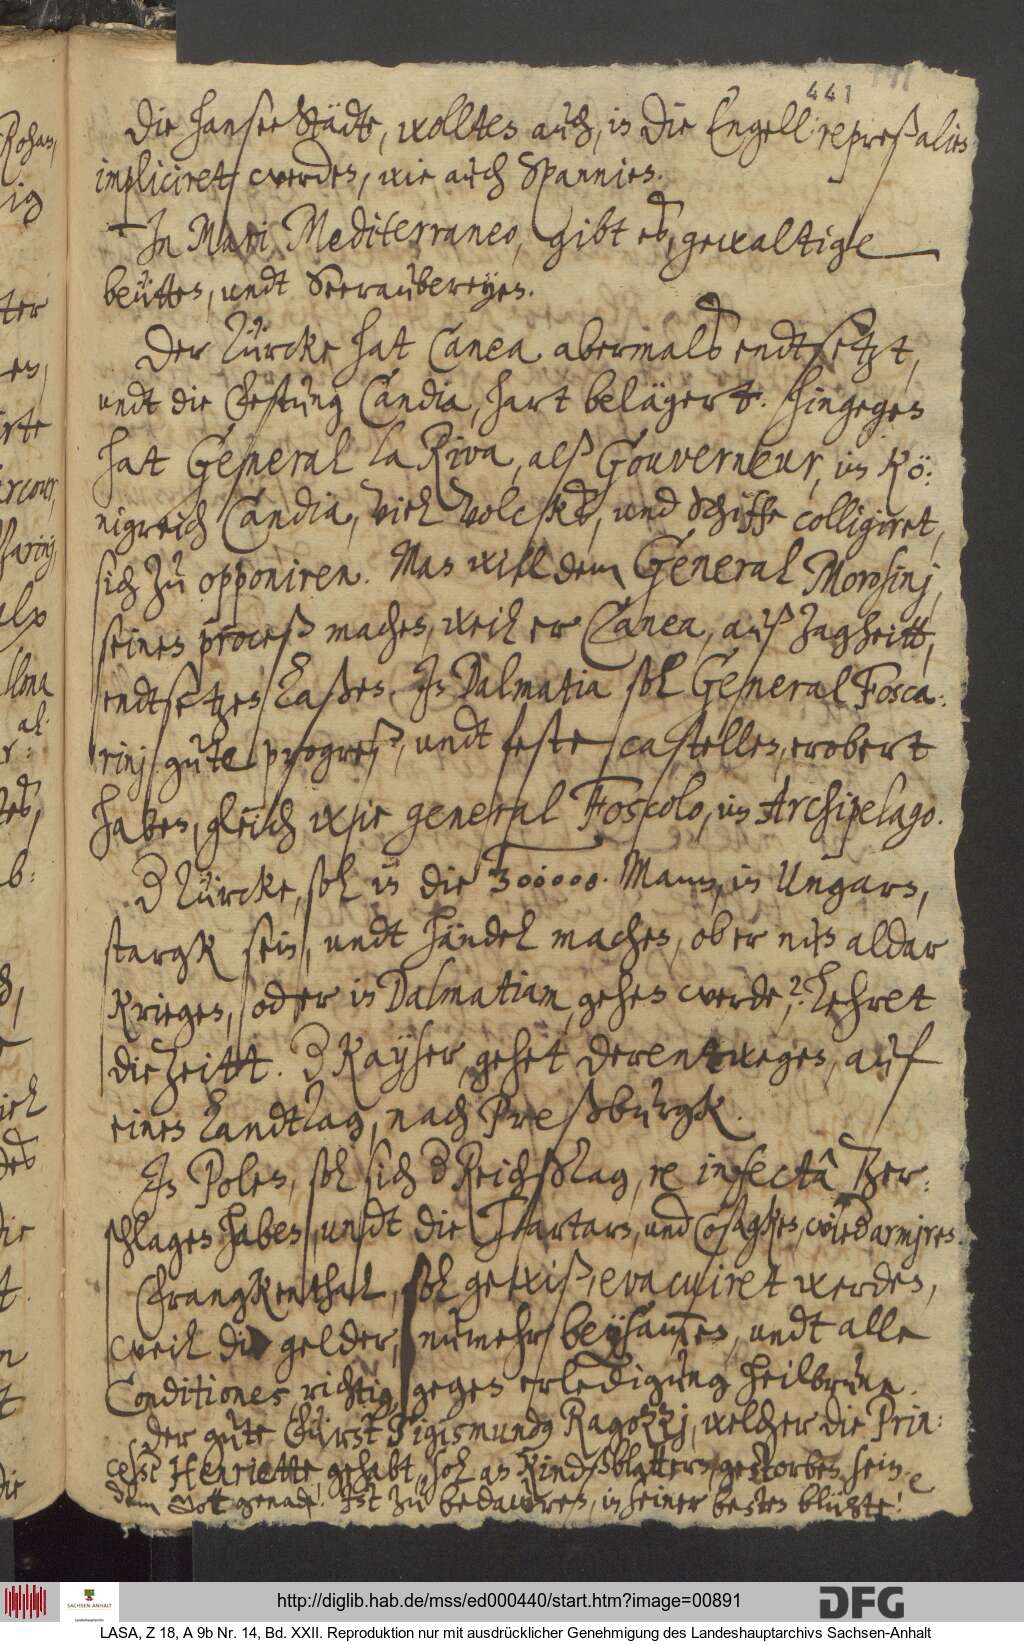 441
Die HanseeStädte, wolltes auch, in die Engell: repreßalies
impliciret werdes, wie auch Spannies.
In Mari Mediterraneo, gibt es, gewaltige
beütten, undt Seeraubereyen.
Der Türcke hat Canea abermals endtsetzt,
undt die Festung Candia, hart belägert. Hingegen
hat General la Riva, alß Gouverneur, im Kö:
nigreich Candia, viel Volcks, und Schiffe colligiret,
sich zu opponiren. Man will dem General Morosinj,
seinen proceß machen, weil er Canea, auß Zagheitt,
endtsetzen laßen. In Dalmatia sol General Fosca:
rinj gute progreß, undt feste castellen, erobert
haben, gleich wie general Foscolo, im Archipelago.
D Türcke, sol in die 300000. Mann, in Ungarn,
stargk sein, undt händel machen, ob er nun aldar
Kriegen, oder in Dalmatiam, gehen werde? lehret
die Zeitt. D Kayser, gehet derentwegen, auf
einen Landtag, nach Preßburgk.
In Polen, sol sich d Reichstag, re infectâ zer:
schlagen haben, undt die Tartarn, und Cosagken, wied armjren.
Frangkenthal, sol gewiß, evacuiret werden,
weil die gelder, numehr beysammen, undt alle
Conditiones richtig, gegen erledigung Heilbrunn.
Der gute Fürst Sigismundg Ragozzj, welcher die Prin:
ceßin Henriette gehabt, sol an Kindsblattern, gestorben sein.
dem Gott genade! Ist zu bedauren, in seiner besten blühte!
Rohan,
http://diglib.hab.de/mss/ed000440/start.htm?image=00891
SACHSEN-ANHALT
Landeshauptarchiv
DFG
LASA, Z 18, A 9b Nr. 14, Bd. XXII. Reproduktion nur mit ausdrücklicher Genehmigung des Landeshauptarchivs Sachsen-Anhalt